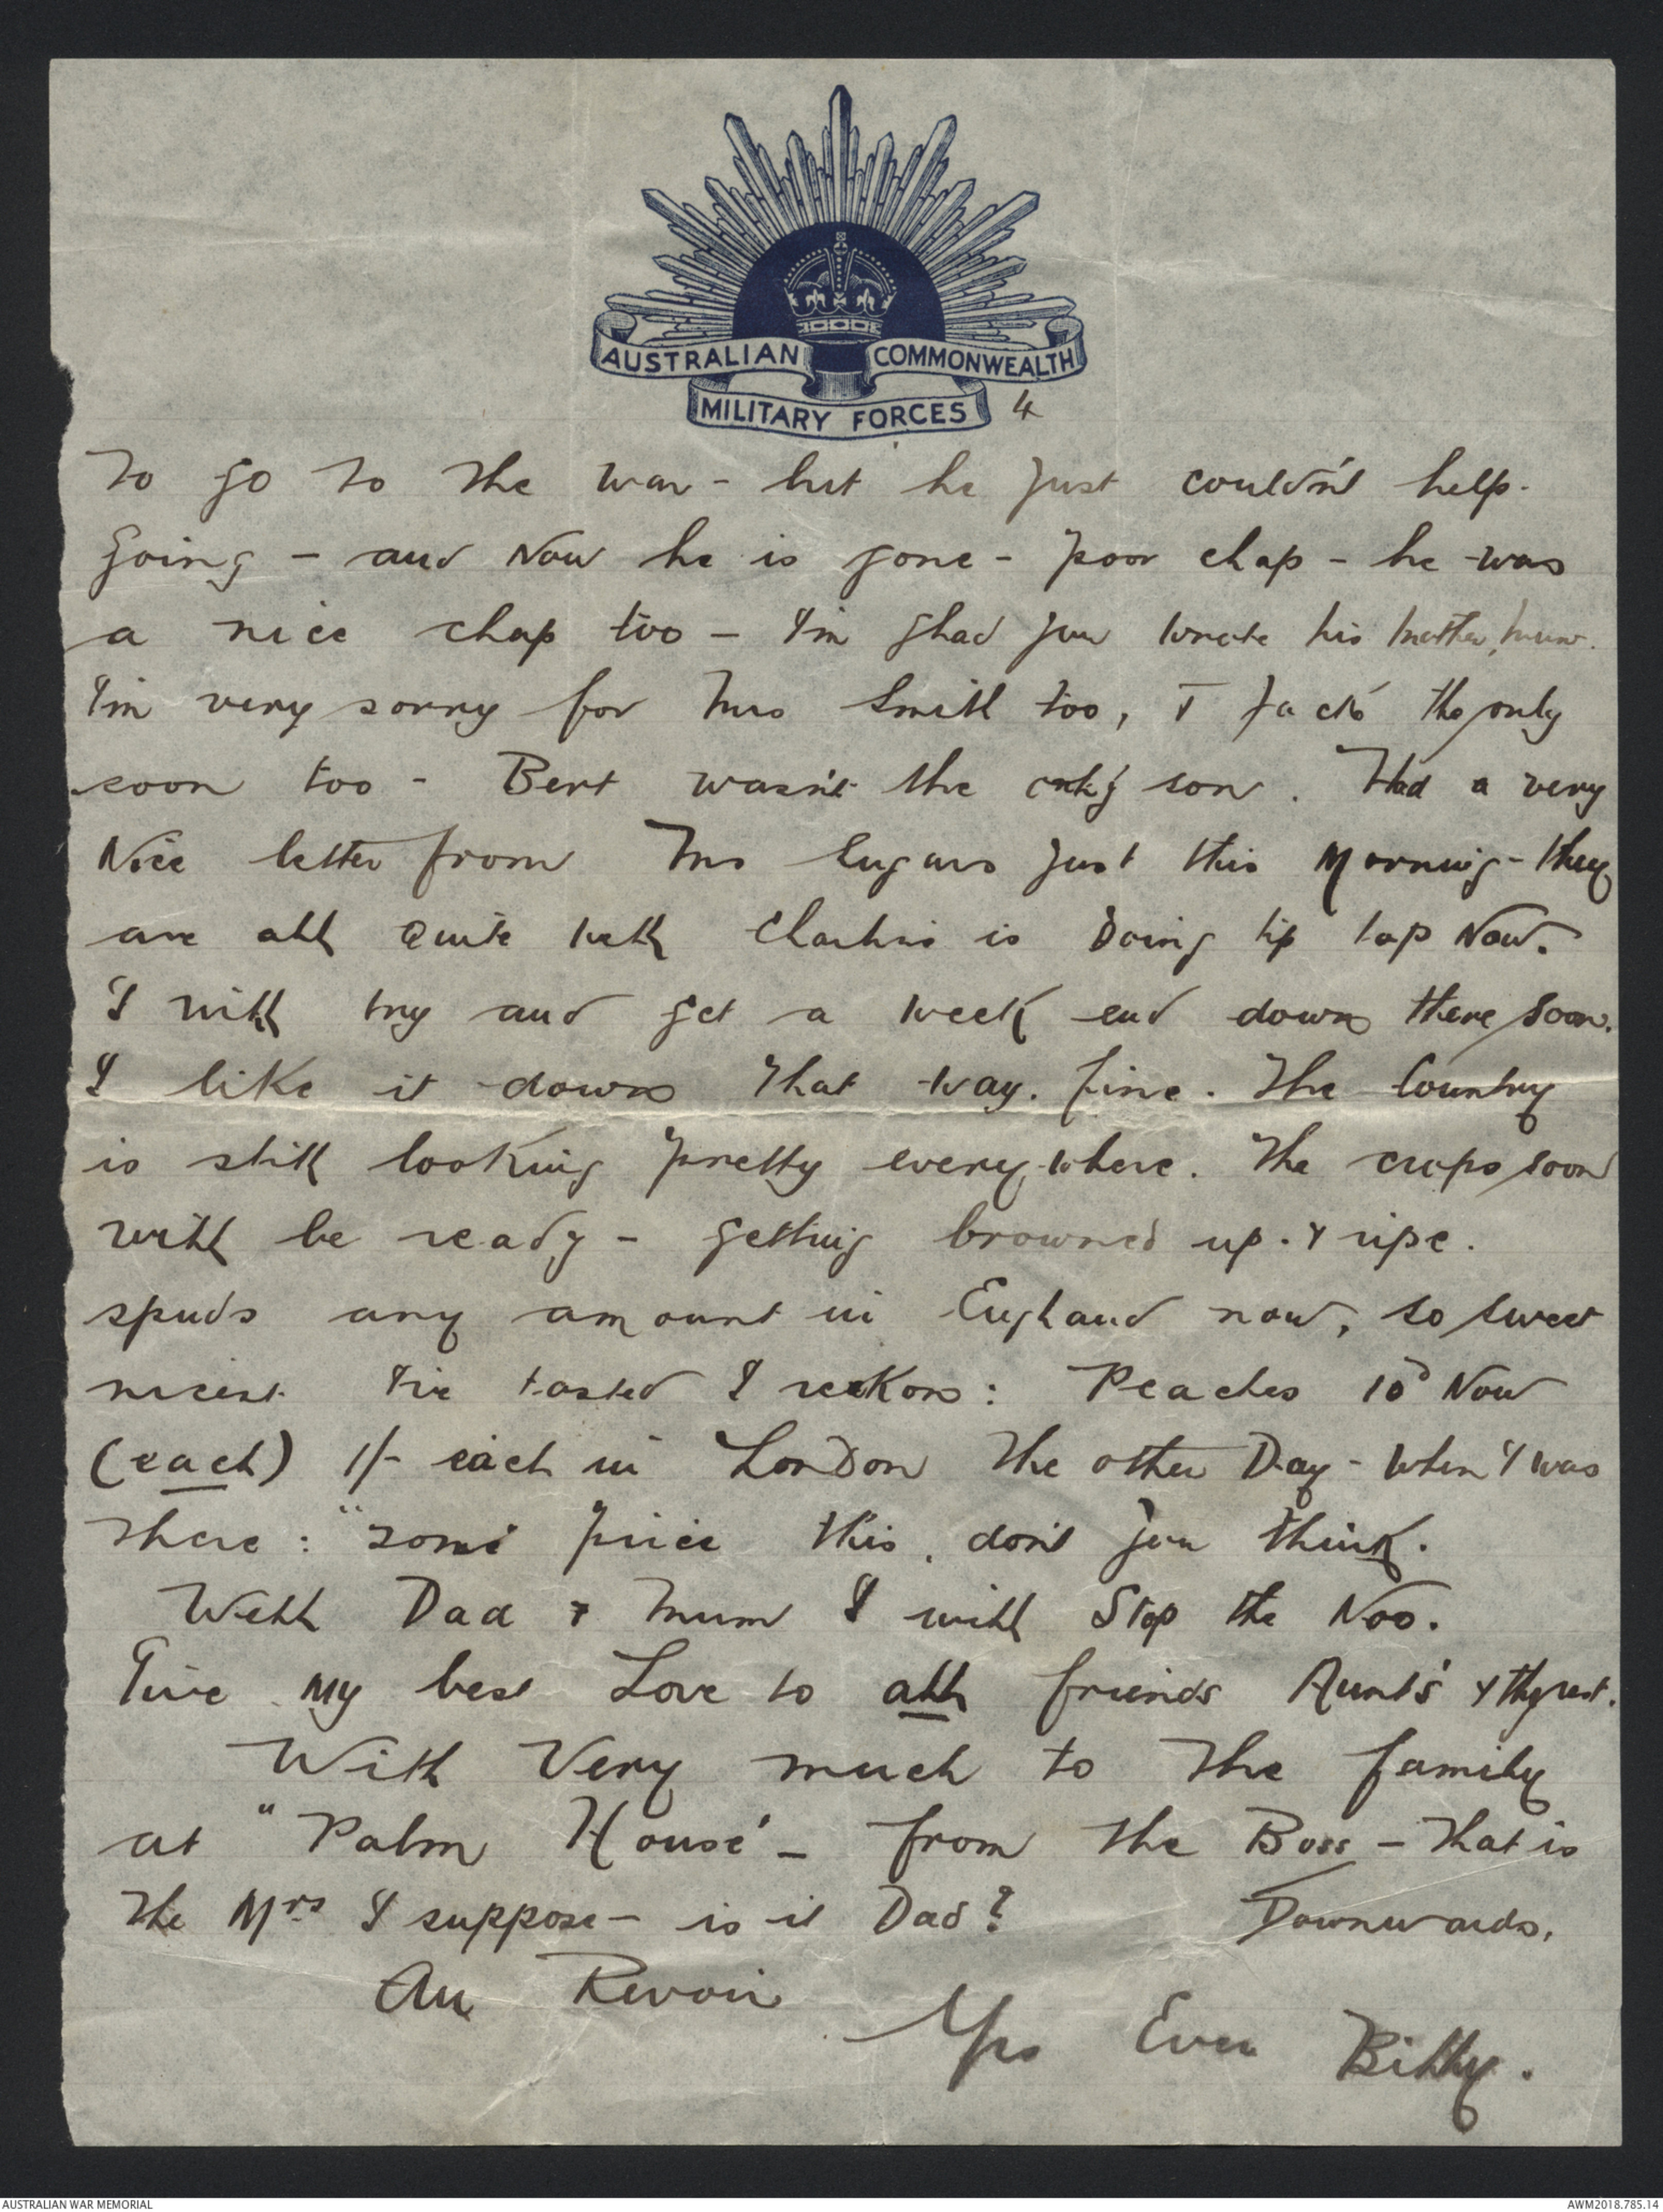 AUSTRALIAN COMMONWEALTH
MILITARY FORCES 4
to go to the war - but he just couldn't help.
going - and Now he is gone - poor chap - he was
a nice chap too - I'm glad you wrote his mother, mum.
I'm very sorry for Mrs Smith too, & Jack the only
soon too - Bert wasn't the only son. Had a very
Nice letter from Mrs just this Morning - they
are all quite well is Doing tip top Now.
I will try and get a week end down there soon.
I like it down that way. fine. The Country
is still looking pretty everywhere. The crops soon
will be ready - getting browned up. & ripe.
spuds any amount in England now, so sweet
nicest I've tasted I reckon: Peaches 10D Now
(each) 1/- each in London the other Day - when I was
there: "some price this. don't you think.
Well Dad & Mum I will Stop the Noo.
Give My best Love to all friends Aunt's & the rest.
With Very much to the family
at "Palm House' - from the Boss - that is
the Mrs I suppose - is it Dad? Downwards.
Au Revoir
Yrs Ever Billy.
AUSTRALIAN WAR MEMORIAL
AWM2018.785.14